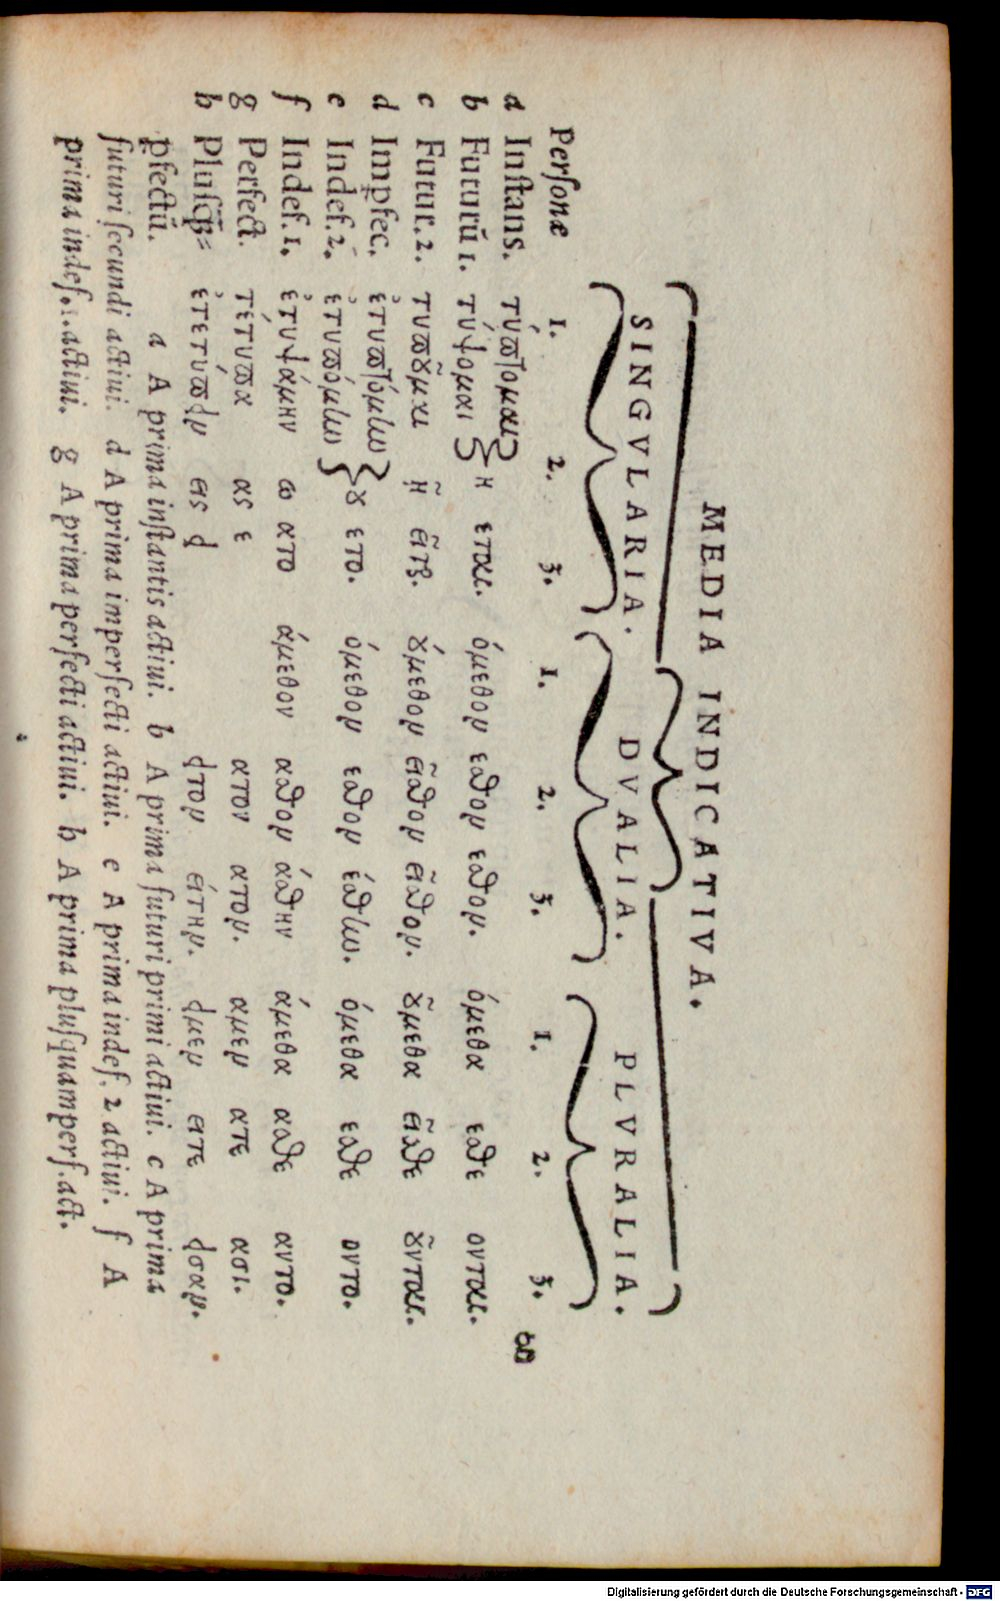 MEDIA INDICATIVA.
SINGVLARIA. DVALIA. PLVRALIA.
Personæ 1. 2. 3. 1. 2. 3. 1. 2. 3.
a Instans. τύπτομαι
b Futurũ 1. τύψομαι } η εται. όμεθον εσθον εσθον. όμεθα εσθε ονται.
c Futur. 2. τυποῦμαι ῆ εῖται. ούμεθον εῖσθον εῖσθον. ούμεθα εῖσθε οῦνται.
d Imp̃fec. ἐτυπτόμην
e Indef. 2. ἐτυπόμην } ου ετο. όμεθον εσθον έσθην. όμεθα εσθε οντο.
f Indef. 1. ἐτυψάμην ω ατο άμεθον ασθον άσθην άμεθα ασθε αντο.
g Perfect. τέτυπα ας ε ατον ατον. αμεν ατε ασι.
h Plusq̃ꝫ= ἐτετύπειν εις ει ειτον είτην. ειμεν ειτε εισαν.
p̃fectũ. a A prima instantis actiui. b A prima futuri primi actiui. c A prima
futuri secundi actiui. d A prima imperfecti actiui. e A prima indef. 2 actiui. f A
prima indef. 1. actiui. g A prima perfecti actiui. h A prima plusquamperf. act.
Digitalisierung gefördert durch die Deutsche Forschungsgemeinschaft - DFG